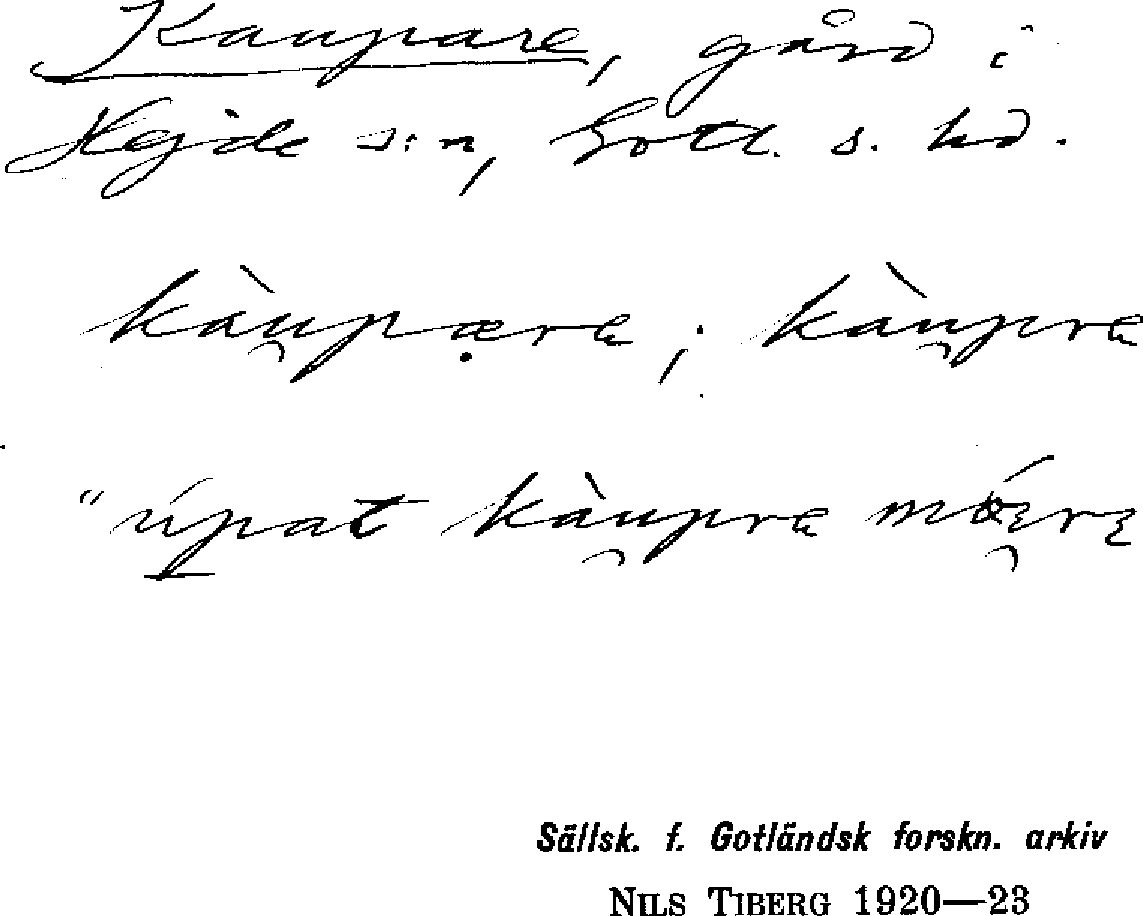 Kaupare, gård i
Hejde s:n, Gotl. s. hd.
kàu̯pæ̣ra ; kàu̯pra
"úpat kàu̯pra
Sällsk. f. Gotländsk forskn. arkiv
NILS TIBERG 1920—23